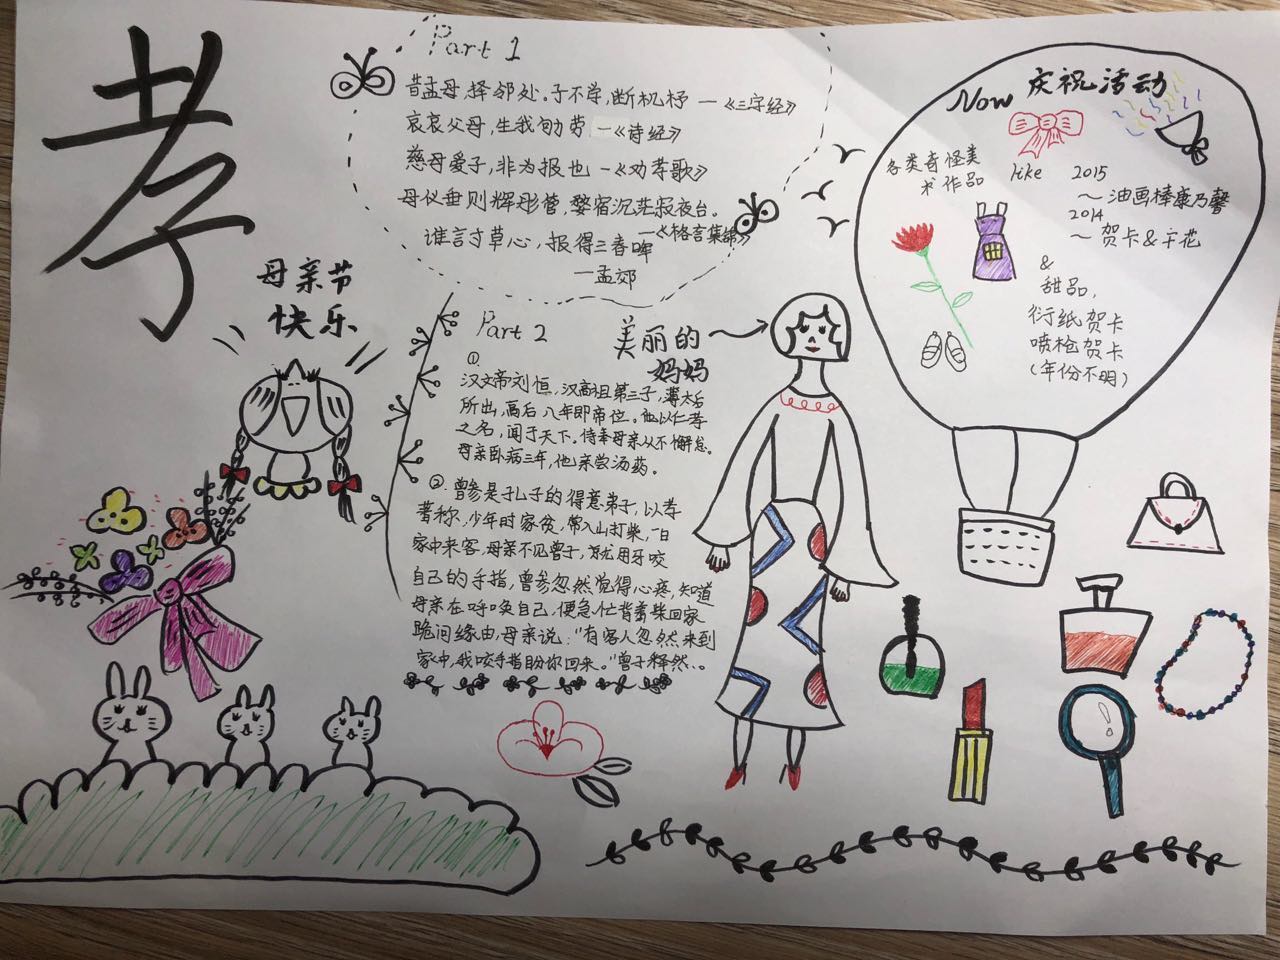 孝
母亲节
快乐
Part 1
昔孟母,择邻处。子不学,断机杼 —《三字经》
哀哀父母,生我劬劳 —《诗经》
慈母爱子,非为报也 —《劝孝歌》
母仪垂则辉彤管,婺宿沉芒寂夜台。
—《格言集锦》
谁言寸草心,报得三春晖
—孟郊
Part 2
①
汉文帝刘恒,汉高祖第三子,薄太后
所出,高后八年即帝位。他以仁孝
之名,闻于天下。侍奉母亲从不懈怠。
母亲卧病三年,他亲尝汤药。
②曾参是孔子的得意弟子,以孝
著称,少年时家贫,常入山打柴,一日
家中来客,母亲不见曾子,就用牙咬
自己的手指,曾参忽然觉得心疼,知道
母亲在呼唤自己,便急忙背着柴回家
跪问缘由,母亲说:"有客人忽然来到
家中,我咬手指盼你回来。"曾子释然...
美丽的
妈妈
Now 庆祝活动
各类奇怪美
术作品
like 2015
~油画棒康乃馨
2014
~贺卡&干花
&
甜品,
衍纸贺卡
喷枪贺卡
(年份不明)